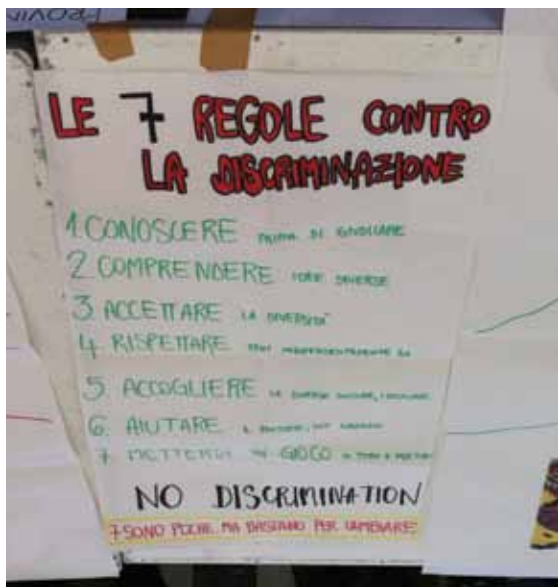 LE 7 REGOLE CONTRO
LA DISCRIMINAZIONE
1 CONOSCERE PRIMA DI GIUDICARE
2 COMPRENDERE IDEE DIVERSE
3 ACCETTARE LA DIVERSITÀ
4. RISPETTARE INDIPENDENTEMENTE DA
5. ACCOGLIERE
6. AIUTARE
7 METTERSI IN GIOCO
NO DISCRIMINATION
7 SONO POCHE MA BASTANO PER CAMBIARE